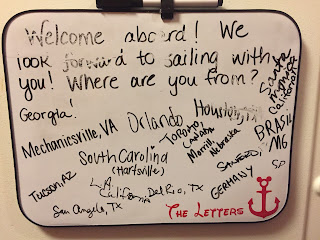 Welcome aboard! We
look forward to sailing with
you! Where are you from?
Georgia!
Orlando
Houston, TX
Santa
Monica
California
Mechanicsville, VA
Toronto,
Canada
BRASIL
MG
South Carolina
(Hartsville)
Morrill,
Nebraska
SANFORD,
GERMANY
S.P
Tucson, AZ
L.A.
California
Del Rio, TX
San Angelo, TX
THE LETTERS